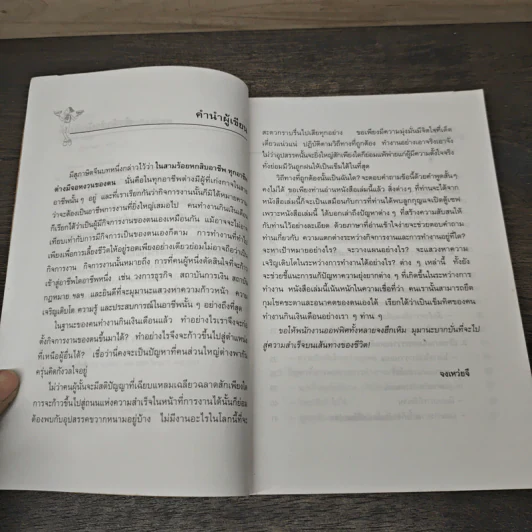 คำนำผู้เขียน
มีสุภาษิตจีนบทหนึ่งกล่าวไว้ว่า ในสามร้อยหกสิบอาชีพ ทุกอาชี
ต่างมีจอหงวนของตน นั่นคือในทุกอาชีพต่างมีผู้ที่เก่งกาจใน
อาชีพนั้น ๆ อยู่ และที่เราเรียกกันว่ากิจการงานนั้นก็มิได้หมายความ
ว่าจะต้องเป็นอาชีพการงานที่ยิ่งใหญ่เสมอไป คนทำงานกินเงินเดือน
ก็เรียกได้ว่าเป็นผู้มีกิจการงานของตนเองเหมือนกัน แม้อาจจะไม่อา
เทียบเท่ากับการมีกิจการเป็นของตนเองก็ตาม การทำงานที่ทำ
เพียงเพื่อการเลี้ยงชีวิตให้อยู่รอดเพียงอย่างเดียวย่อมไม่อาจถือว่าเป็น
กิจการงาน กิจการงานนั้นหมายถึง การที่คนผู้หนึ่งตัดสินใจที่จะก้าว
เข้าสู่อาชีพใดอาชีพหนึ่ง เช่น วงการธุรกิจ สถาบันการเงิน สถาบัน
กฎหมาย ฯลฯ และยินดีที่จะมุมานะแสวงหาความก้าวหน้า ความ
เจริญเติบโต ความรู้ และประสบการณ์ในอาชีพนั้น ๆ อย่างถึงที่สุด
ในฐานะของคนทำงานกินเงินเดือนแล้ว ทำอย่างไรเราจึงจะ
ตั้งกิจการงานของตนขึ้นมาได้? ทำอย่างไรจึงจะก้าวขึ้นไปสู่ตำแหน่ง
ที่เหนือผู้อื่นได้? เชื่อว่านี่คงจะเป็นปัญหาที่คนส่วนใหญ่ต่างพากัน
ครุ่นคิดกังวลใจอยู่
ไม่ว่าคนผู้นั้นจะมีสติปัญญาที่เฉียบแหลมเฉลียวฉลาดสักเพียงใด
การจะก้าวขึ้นไปสู่ถนนแห่งความสำเร็จในหน้าที่การงานได้นั้นก็ย่อม
ต้องพบกับอุปสรรคขวากหนามอยู่บ้าง ไม่มีงานอะไรในโลกนี้ที่จะ
สะดวกราบรื่นไปเสียทุกอย่าง ขอเพียงมีความมุ่งมั่นมีจิตใจที่เด็ด
เดี่ยวแน่วแน่ ปฏิบัติตามวิธีทางที่ถูกต้อง ทำงานอย่างเอาจริงเอาจัง
ไม่ว่าอุปสรรคนั้นจะยิ่งใหญ่สักเพียงใดก็ย่อมแพ้พ่ายแก่ผู้มีความตั้งใจจริง
ท่อนเหล็กย่อมมีวันถูกฝนให้เป็นเข็มได้ในที่สุด
วิธีทางที่ถูกต้องนั้นเป็นฉันใด? จะตอบคำถามข้อนี้ด้วยคำพูดสั้นๆ
คงไม่ได้ ขอเพียงท่านอ่านหนังสือเล่มนี้แล้ว สิ่งต่างๆ ที่ท่านจะได้จาก
หนังสือเล่มนี้ก็จะเป็นเสมือนกับการที่ท่านได้พบลูกกุญแจเปิดตู้เซฟ
เพราะหนังสือเล่มนี้ ได้บอกเล่าถึงปัญหาต่าง ๆ ที่สร้างความสับสนให้กับ
ท่านไว้อย่างละเอียด ด้วยภาษาที่อ่านเข้าใจง่ายจะช่วยตอบคำถาม
ท่านเกี่ยวกับ ความแตกต่างระหว่างกิจการงานและการทำงานอยู่ที่ใด?
จะหาเป้าหมายอย่างไร? จะวางแผนอย่างไร? จะแสวงหาความ
เจริญเติบโตในระหว่างการทำงานได้อย่างไร? ต่าง ๆ เหล่านี้ ทั้งยัง
จะช่วยชี้แนะการแก้ปัญหาความยุ่งยากต่าง ๆ ที่เกิดขึ้นในระหว่างการ
ทำงาน หนังสือเล่มนี้เน้นหนักในความเชื่อที่ว่า คนเรานั้นสามารถยึด
กุมโชคชะตาและอนาคตของตนเองได้ เรียกได้ว่าเป็นเข็มทิศของคน
ทำงานกินเงินเดือนอย่างเรา ๆ ท่าน ๆ
ขอให้พนักงานออฟฟิศทั้งหลายจงฮึกเหิม มุมานะบากบั่นที่จะไป
สู่ความสำเร็จบนเส้นทางของชีวิต!
จงเหว่ยจี